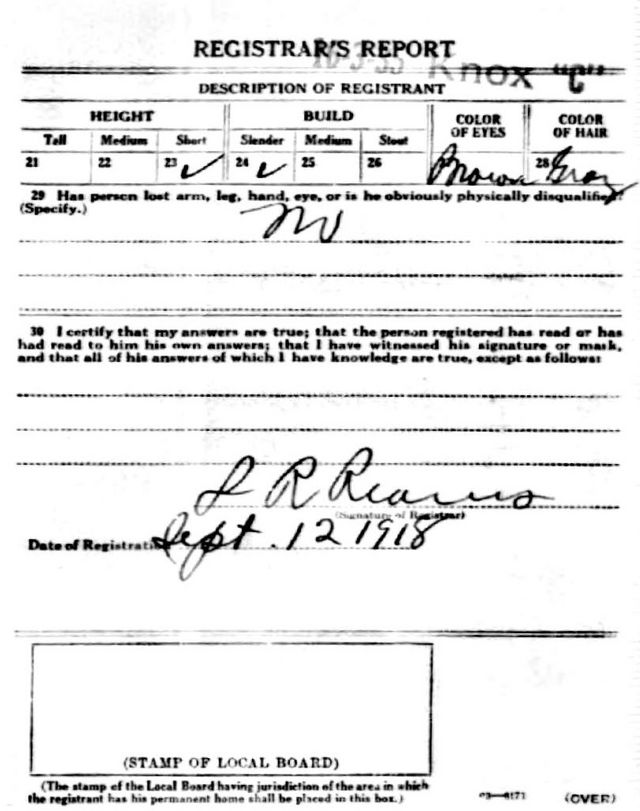 REGISTRAR'S REPORT
Knox "C"
DESCRIPTION OF REGISTRANT
HEIGHT BUILD COLOR OF EYES COLOR OF HAIR
Tall Medium Short Slender Medium Stout
21 22 23 ✓ 24 ✓ 25 26 Brown 28 Gray
29 Has person lost arm, leg, hand, eye, or is he obviously physically disqualified?
(Specify.)
No
30 I certify that my answers are true; that the person registered has read or has
had read to him his own answers; that I have witnessed his signature or mark,
and that all of his answers of which I have knowledge are true, except as follows:
R Reams
(Signature of Registrar)
Date of Registration Sept. 12 1918
(STAMP OF LOCAL BOARD)
(The stamp of the Local Board having jurisdiction of the area in which
the registrant has his permanent home shall be placed in this box.)
03—6171 (OVER)